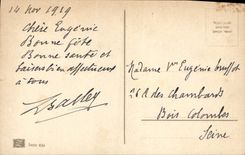 14 Nov 1939
Chère Eugénie
Bonne fête
Bonne santé et
baisers bien affectueux
à tous
Madame Vve Eugénie
26 R des Chambards
Bois Colombes
Seine